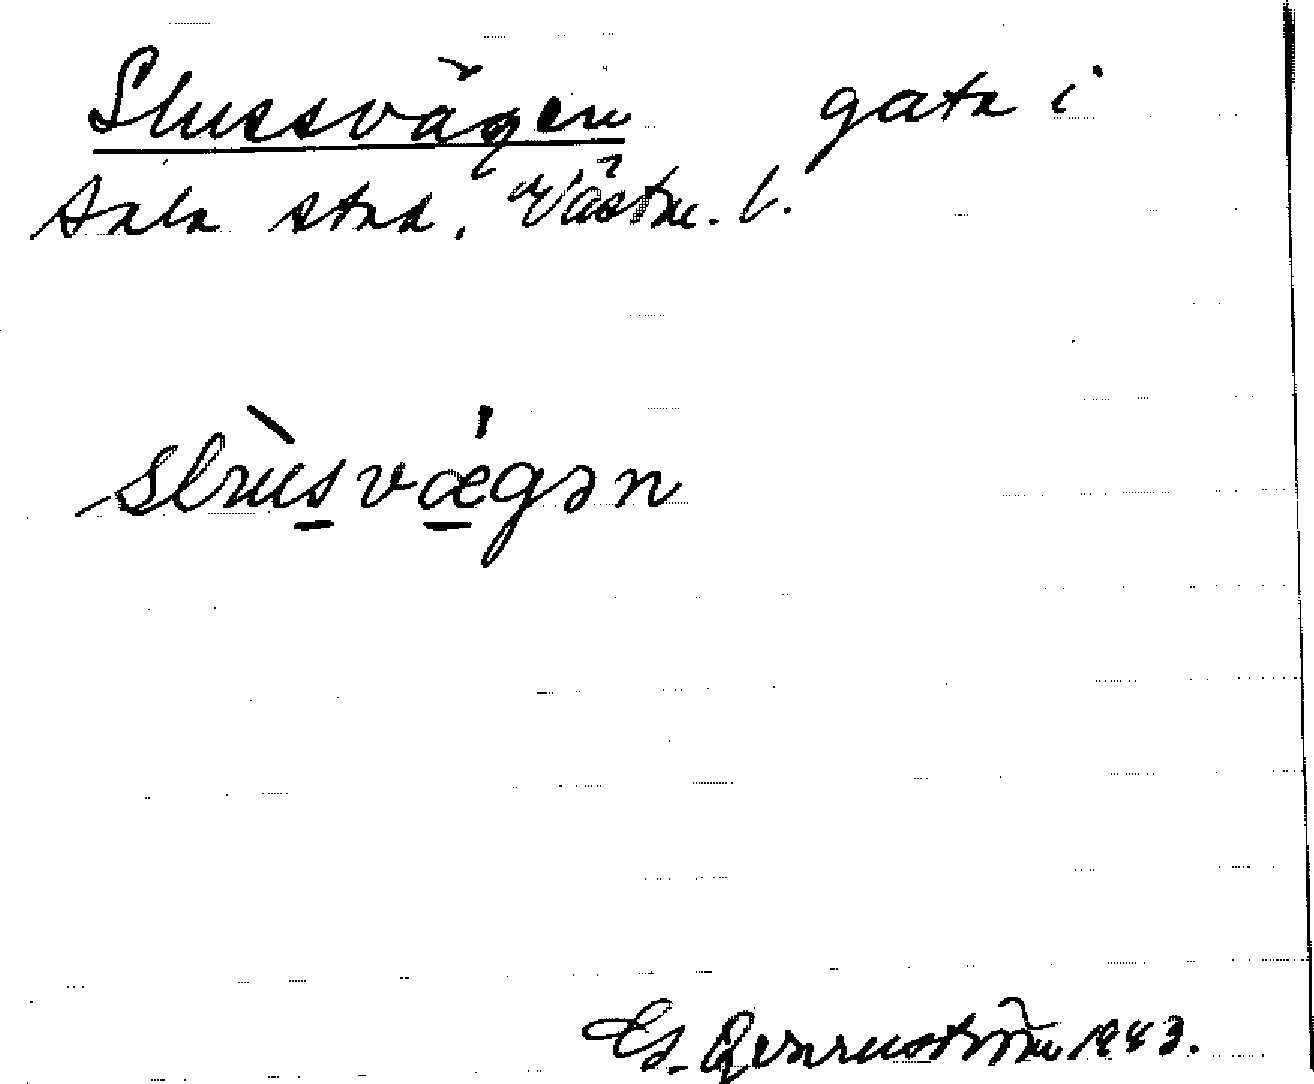 Slussvägen gata i
Sala stad. Västm. l.
slusvægən
1943.